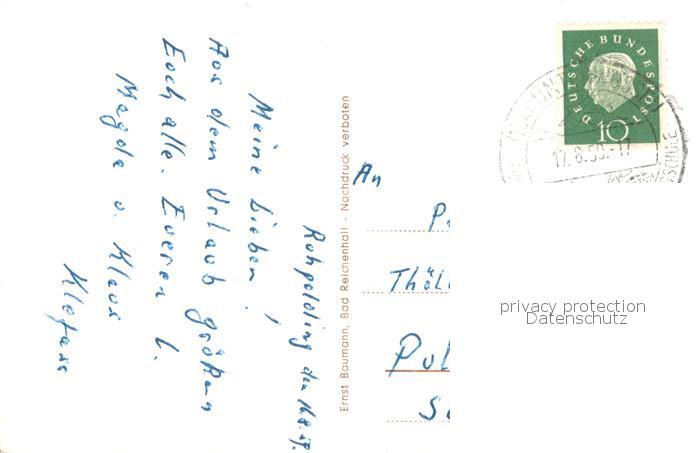 Ruhpolding den 16.8.59.
Meine Lieben!
Aus dem Urlaub grüßen
Euch alle. Eueren L.
Magda u. Klaus
Klefass
Ernst Baumann, Bad Reichenhall - Nachdruck verboten
DEUTSCHE BUNDESPOST
10
17.8.59.-17
An
P
Thöl
Pul
privacy protection
Datenschutz